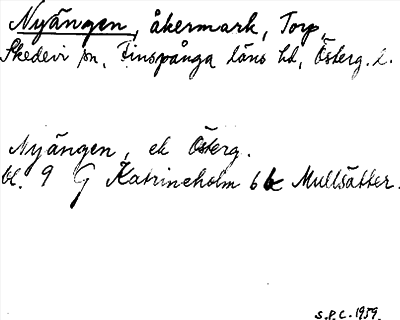 Nyängen, åkermark, Torp,
Skedevi sn, Finspånga läns hd, Österg. l.
Nyängen, ek Österg.
bl. 9 G Katrineholm 6 b Mullsätter.
S.P.C. 1959.